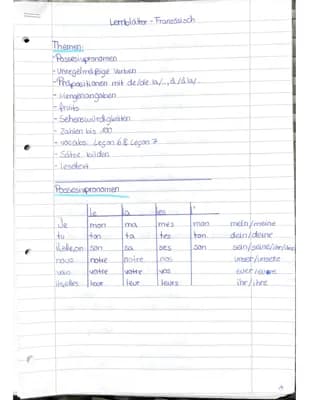 Lernblätter - Französisch
Themen:
- Possesivpronomen
- Unregelmäßige Verben
- Präpositionen mit de/de la/..., à/à la/...
- Mengenangaben
- fruits
- Sehenswürdigkeiten
- Zahlen bis 100
- vocabs: Leçon 6 & Leçon 7
- Sätze bilden
- Lesetext
Possesivpronomen
le la les l'
Je mon ma mes mon mein/meine
tu ton ta tes ton dein/deine
il,elle,on son sa ses son sein/seine/ihr/ihre
nous notre notre nos unser/unsere
vous votre votre vos euer/eure
ils,elles leur leur leurs ihr/ihre